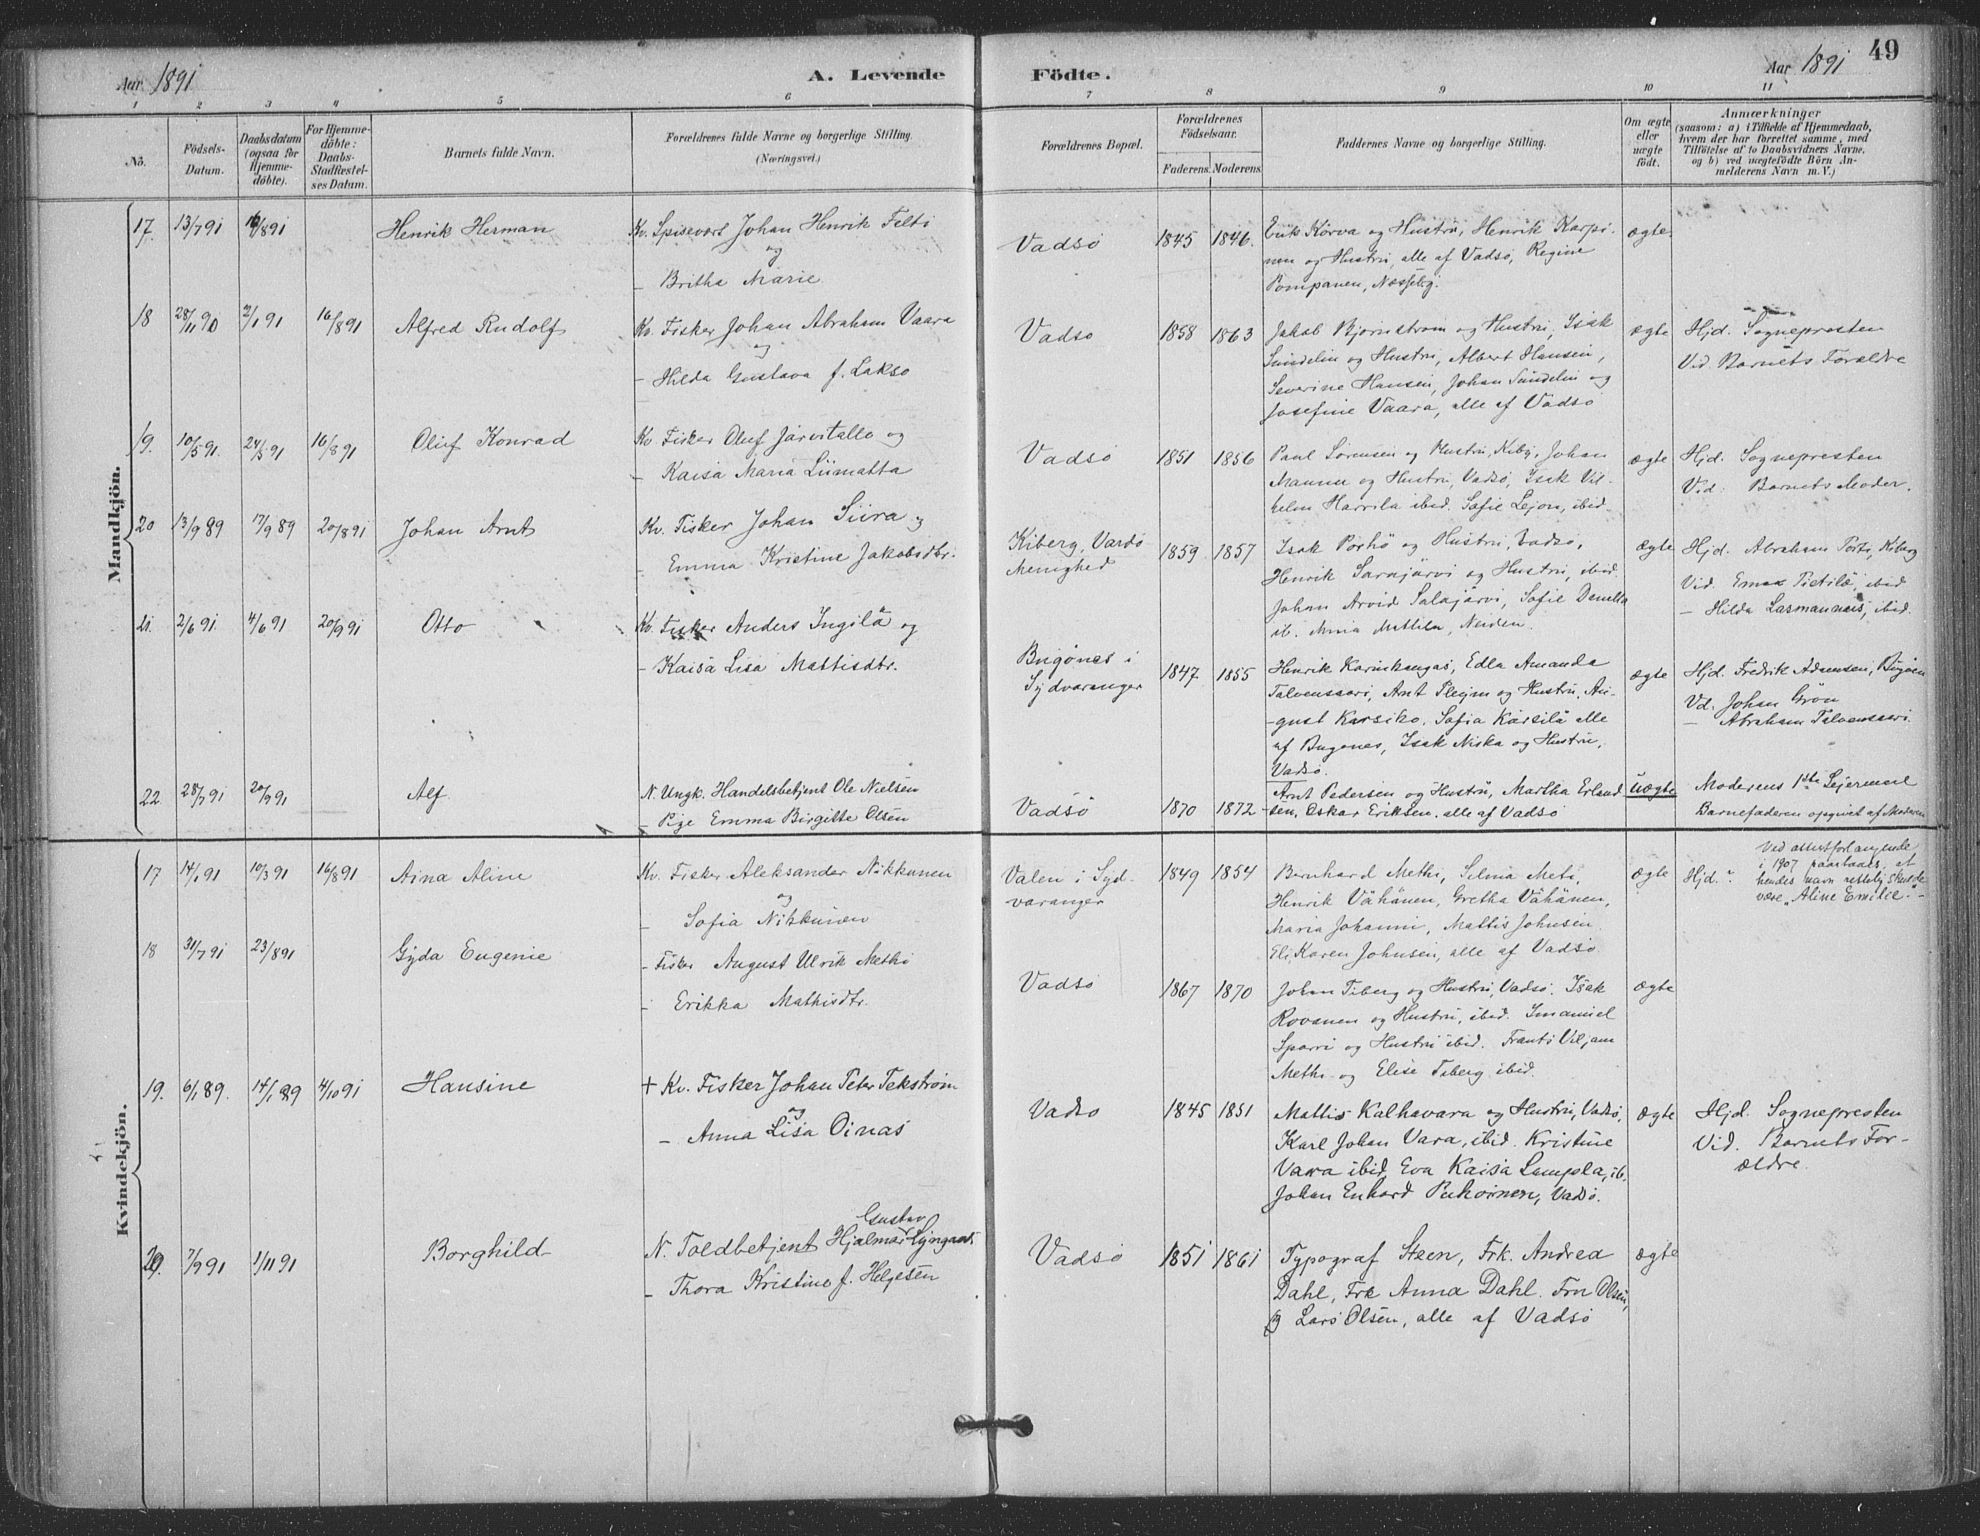 49
Aar 1891
A. Levende
Födte.
Aar 1891
1 2 3 4 5 6 7 8 9 10 11
No.
Födsels-Datum.
Daabsdatum (ogsaa for Hjemme-döbte).
For Hjemme-döbte: Daabs-Stadfestel-ses Datum.
Barnets fulde Navn.
Forældrenes fulde Navne og borgerlige Stilling.
(Næringsvei.)
Forældrenes Bopæl.
Forældrenes Födselsaar.
Faderens. Moderens.
Faddernes Navne og borgerlige Stilling.
Om ægte eller uægte födt.
Anmærkninger
(saasom: a) i Tilfælde af Hjemmedaab,
hvem der har forrettet samme, med
Tilföielse af to Daabsvidners Navne,
og b) ved uægtefödte Börn An-
melderens Navn m. V.)
Mandkjön.
17. 13/7 91 16/8 91 Henrik Herman
Kv. Spisevært Johan Henrik Felti
og
– Britha Marie
Vadsö 1845 1846.
Erik Körva og Hustru, Henrik Karpi-
nen og Hustru, alle af Vadsö, Regine
Pompanen, Næsseby.
ægte.
18 28/11 90 2/1 91 16/8 91 Alfred Rudolf
Kv. Fisker Johan Abraham Vaara
og
– Hilda Gustava f. Lakso
Vadsö 1858 1863
Jakob Bjornstrom og Hustru, Isak
Sundelin og Hustru, Albert Hansen,
Severine Hansen, Johan Sundelin og
Josefine Vaara, alle af Vadsö
ægte
Hjd. Sognepresten
Vid. Barnets Forældre
19. 10/5 91 24/5 91 16/8 91 Oluf Konrad
Kv. Fisker Oluf Järvitallo og
– Kaisa Maria Liimatta
Vadsö 1851 1856
Paul Sörensen og Hustru, Kiby, Johan
Mannu og Hustru, Vadsö, Isak Vil-
helm Harrila ibid. Sofie Lejon, ibid.
ægte
Hjd. Sognepresten
Vid. Barnets Moder.
20 13/9 89 17/9 89 20/8 91 Johan Arnt
Kv. Fisker Johan Siira og
– Emma Kristine Jakobsdtr.
Kiberg, Vardö
Menighed
1859 1857
Isak Porhö og Hustru, Vadsö,
Henrik Sarajärvi og Hustru, ibid.
Johan Arvid Salajärvi, Sofie
ib. Mattila, Neiden.
ægte
Hjd. Abraham Porti, Kiberg
Vid. Pietilä, ibid
– Hilda ibid.
21. 2/6 91 4/6 91 20/9 91 Otto
Kv. Fisker Anders Ingilä og
– Kaisa Lisa Mattisdtr.
Bugönes i
Sydvaranger
1847 1855
Henrik Karinkangas, Edla Amanda
Talvensaari, Arnt Plejm og Hustru, Au-
gust Karsiko, Sofia Karsilä alle
af Bugenes, Isak Niska og Hustru,
Vadsö.
ægte
Hjd. Fredrik Adamsen, Bugøen
Vd. Johan Grön
– Abraham Talvensaari.
22. 28/7 91 20/9 91 Alf
N. Ungk. Handelsbetjent Ole Nielsen
– Pige Emma Birgitte Olsen
Vadsö 1870 1872
Arnt Pedersen og Hustru, Martha Erland-
sen, Oskar Eriksen, alle af Vadsö
uægte
Moderens 1ste Lejermaal
Barnefaderen opgivet af Moderen
Kvindekjön.
17 14/1 91 10/3 91 16/8 91 Aina Aline
Kv. Fisker Aleksander Nikkunen
og
– Sofia Nikkunen
Valen i Syd-
varanger
1849 1854
Bernhard Methi, Selma Meti,
Henrik Vähänen, Gretha Vähänen,
Maria Johanni, Mattis Johnsen
Eli Karen Johnsen, alle af Vadsö
ægte
Hjd.
Ved attestforlangende
i 1907 paastaaes, at
hendes navn rettelig skulde
være „Aline Emilie.“ –
18 31/7 91 23/8 91 Gyda Eugenie
– Fisker August Ulrik Methi
– Erikka Mathisdtr.
Vadsö 1867 1870
Johan Tiberg og Hustru, Vadsö. Isak
Rovanen og Hustru, ibid. Imanuel
Sparri og Hustru ibid. Frants Viljam
Methi og Elise Tiberg ibid.
ægte
19. 6/1 89. 14/1 89 4/10 91 Hansine
+ Kv. Fisker Johan Peter Tekström
og
– Anna Lisa Oinas
Vadsö 1845 1851
Mattis Kalhavara og Hustru, Vadsö,
Karl Johan Vara, ibid. Kristine
Vaara ibid, Eva Kaisa Lampela, ib,
Johan Enhard Vadsö.
ægte
Hjd. Sognepresten
Vid. Barnets For-
ældre.
20. 7/9 91 1/11 91 Borghild
Gustav
N. Toldbetjent Hjalmar Lyngaas
– Thora Kristine f. Helgesen
Vadsö 1851 1861
Typograf Steen, Frk. Andrea
Dahl, Frk Anna Dahl. Fru Olsen,
og Lars Olsen, alle af Vadsö
ægte